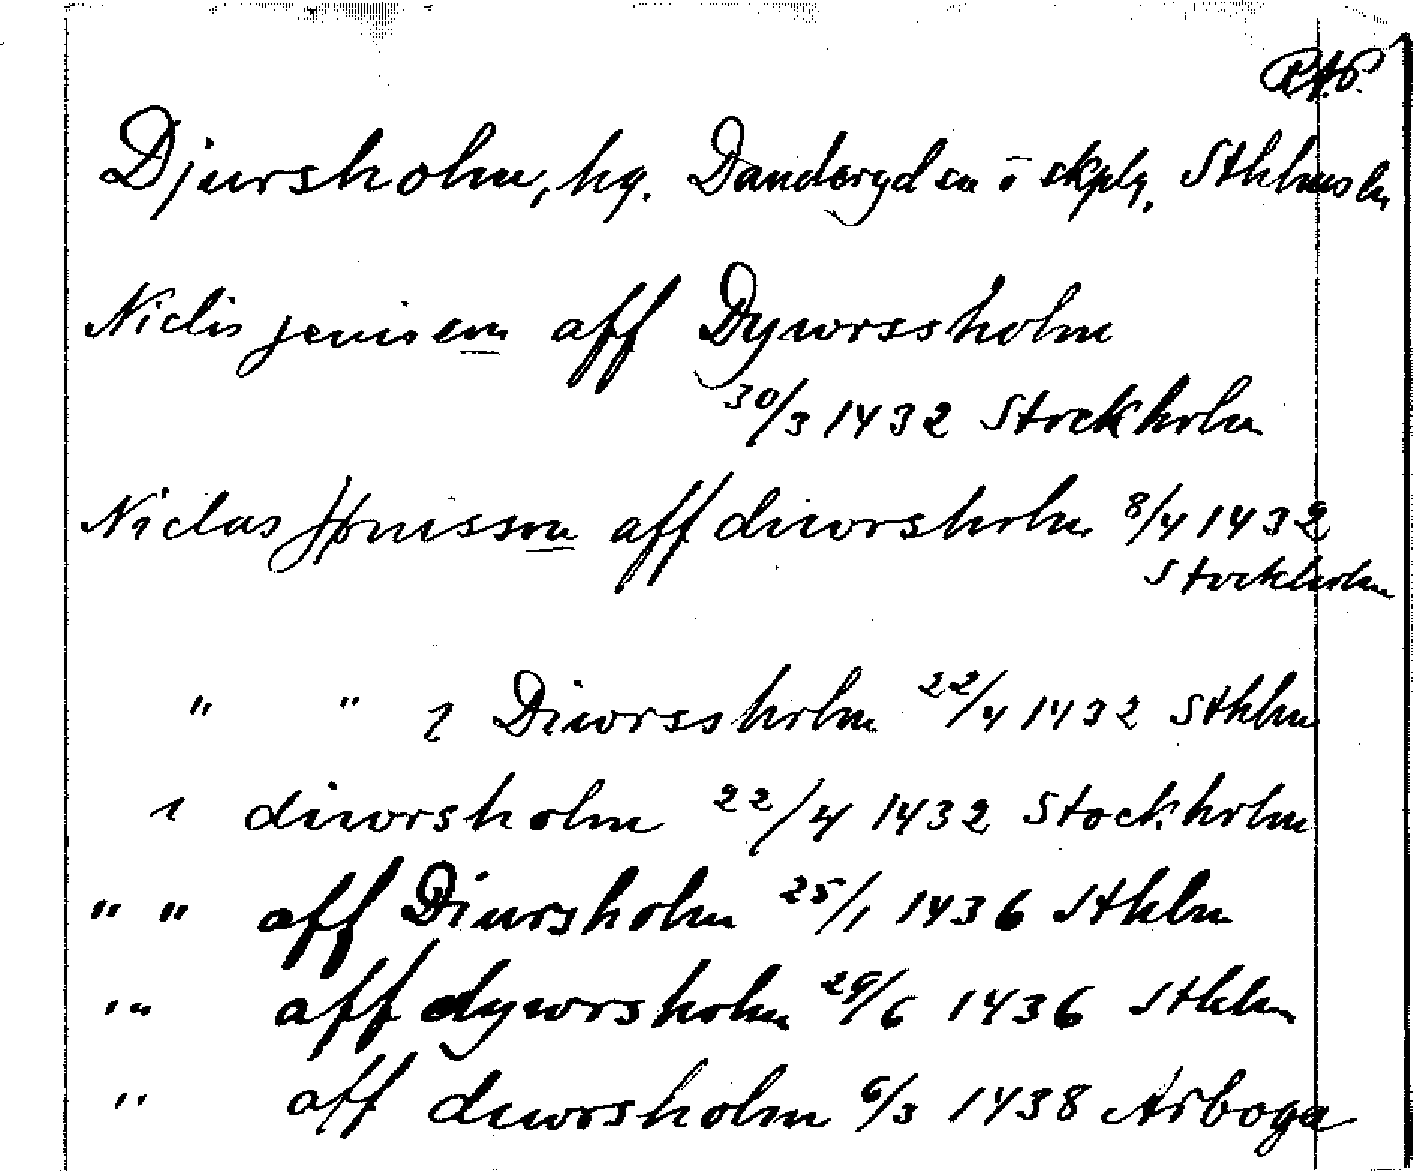 RAP.
Djursholm, hg. Danderyd sn o skplg. Sthlms ln
Niclis jenissem aff Dywrssholm
30/3 1432 Stockholm
Niclas Jenisson aff diwrsholm 8/4 1432
Stockholm
" " i Diwrssholm 22/4 1432 Sthlm
i diwrsholm 22/4 1432 Stockholm
" " aff Diursholm 25/1 1436 Sthlm
" " aff dywrsholm 29/6 1436 Sthlm
" aff diwrsholm 6/3 1438 Arboga